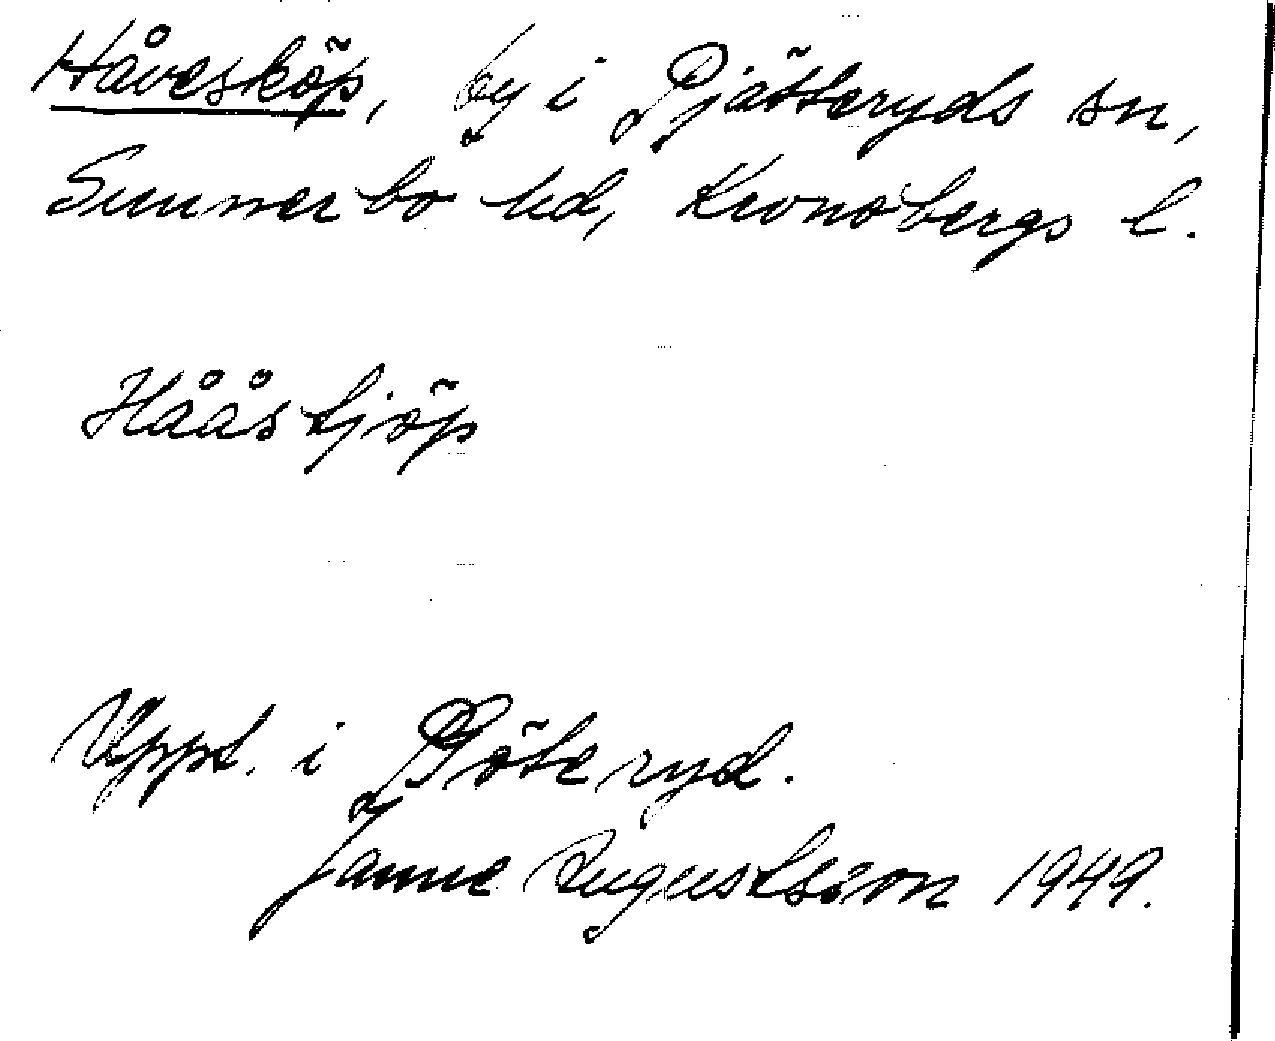 Håvesköp, by i Pjätteryds sn,
Sunnerbo hd, Kronobergs l.
Hååskjöp
Uppt. i Göteryd.
Janne Augustsson 1949.